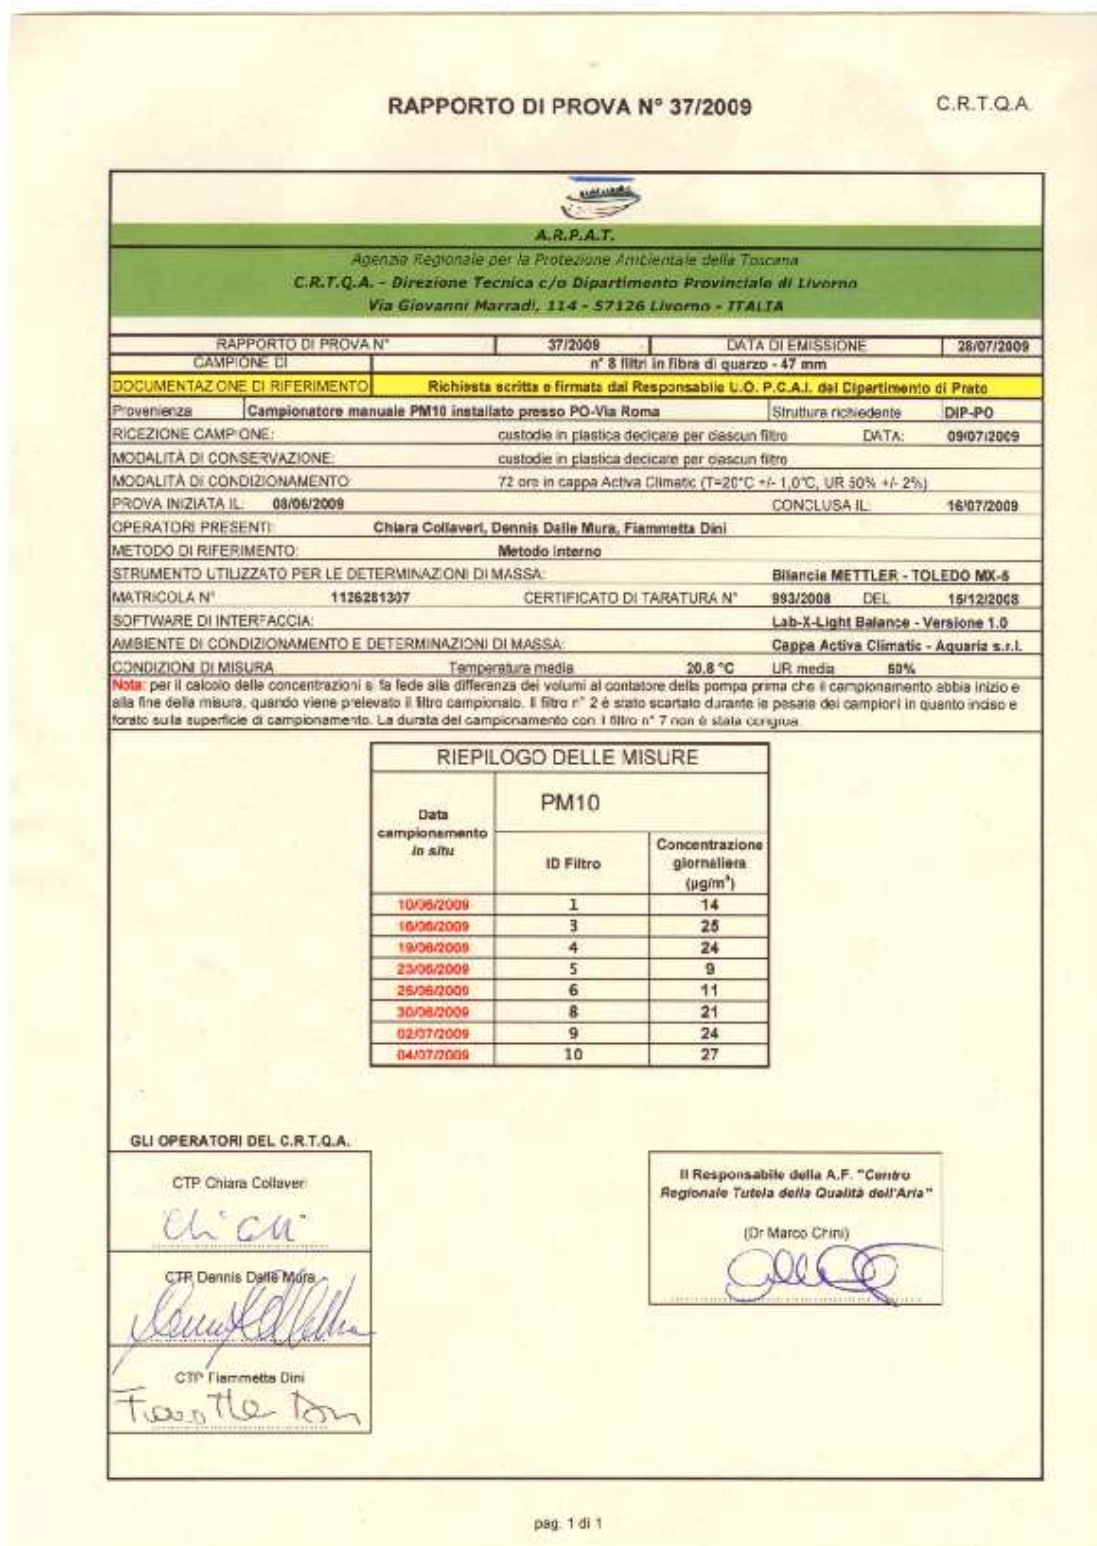 RAPPORTO DI PROVA N° 37/2009
C.R.T.Q.A.
A.R.P.A.T.
Agenzia Regionale per la Protezione Ambientale della Toscana
C.R.T.Q.A. - Direzione Tecnica c/o Dipartimento Provinciale di Livorno
Via Giovanni Marradi, 114 - 57126 Livorno - ITALIA
RAPPORTO DI PROVA N° 37/2009 DATA DI EMISSIONE 28/07/2009
CAMPIONE DI n° 8 filtri in fibra di quarzo - 47 mm
DOCUMENTAZIONE DI RIFERIMENTO Richiesta scritta e firmata dal Responsabile U.O. P.C.A.I. del Dipartimento di Prato
Provenienza Campionatore manuale PM10 installato presso PO-Via Roma Struttura richiedente DIP-PO
RICEZIONE CAMPIONE: custodie in plastica dedicate per ciascun filtro DATA: 09/07/2009
MODALITÀ DI CONSERVAZIONE: custodie in plastica dedicate per ciascun filtro
MODALITÀ DI CONDIZIONAMENTO 72 ore in cappa Activa Climatic (T=20°C +/- 1,0°C, UR 50% +/- 2%)
PROVA INIZIATA IL: 08/06/2009 CONCLUSA IL: 16/07/2009
OPERATORI PRESENTI: Chiara Collaveri, Dennis Dalle Mura, Fiammetta Dini
METODO DI RIFERIMENTO: Metodo interno
STRUMENTO UTILIZZATO PER LE DETERMINAZIONI DI MASSA: Bilancia METTLER - TOLEDO MX-5
MATRICOLA N° 1126281307 CERTIFICATO DI TARATURA N° 993/2008 DEL 15/12/2008
SOFTWARE DI INTERFACCIA: Lab-X-Light Balance - Versione 1.0
AMBIENTE DI CONDIZIONAMENTO E DETERMINAZIONI DI MASSA: Cappa Activa Climatic - Aquaria s.r.l.
CONDIZIONI DI MISURA Temperatura media 20.8 °C UR media 50%
Nota: per il calcolo delle concentrazioni si fa fede alla differenza dei volumi al contatore della pompa prima che il campionamento abbia inizio e
alla fine della misura, quando viene prelevato il filtro campionato. Il filtro n° 2 è stato scartato durante le pesate dei campioni in quanto inciso e
forato sulla superficie di campionamento. La durata del campionamento con il filtro n° 7 non è stata congrua.
RIEPILOGO DELLE MISURE
Data campionamento in situ
PM10
ID Filtro
Concentrazione giornaliera (µg/m³)
10/06/2009 1 14
16/06/2009 3 25
19/06/2009 4 24
23/06/2009 5 9
25/06/2009 6 11
30/06/2009 8 21
02/07/2009 9 24
04/07/2009 10 27
GLI OPERATORI DEL C.R.T.Q.A.
CTP Chiara Collaveri
CTP Dennis Dalle Mura
CTP Fiammetta Dini
Il Responsabile della A.F. "Centro
Regionale Tutela della Qualità dell'Aria"
(Dr Marco Chini)
pag. 1 di 1